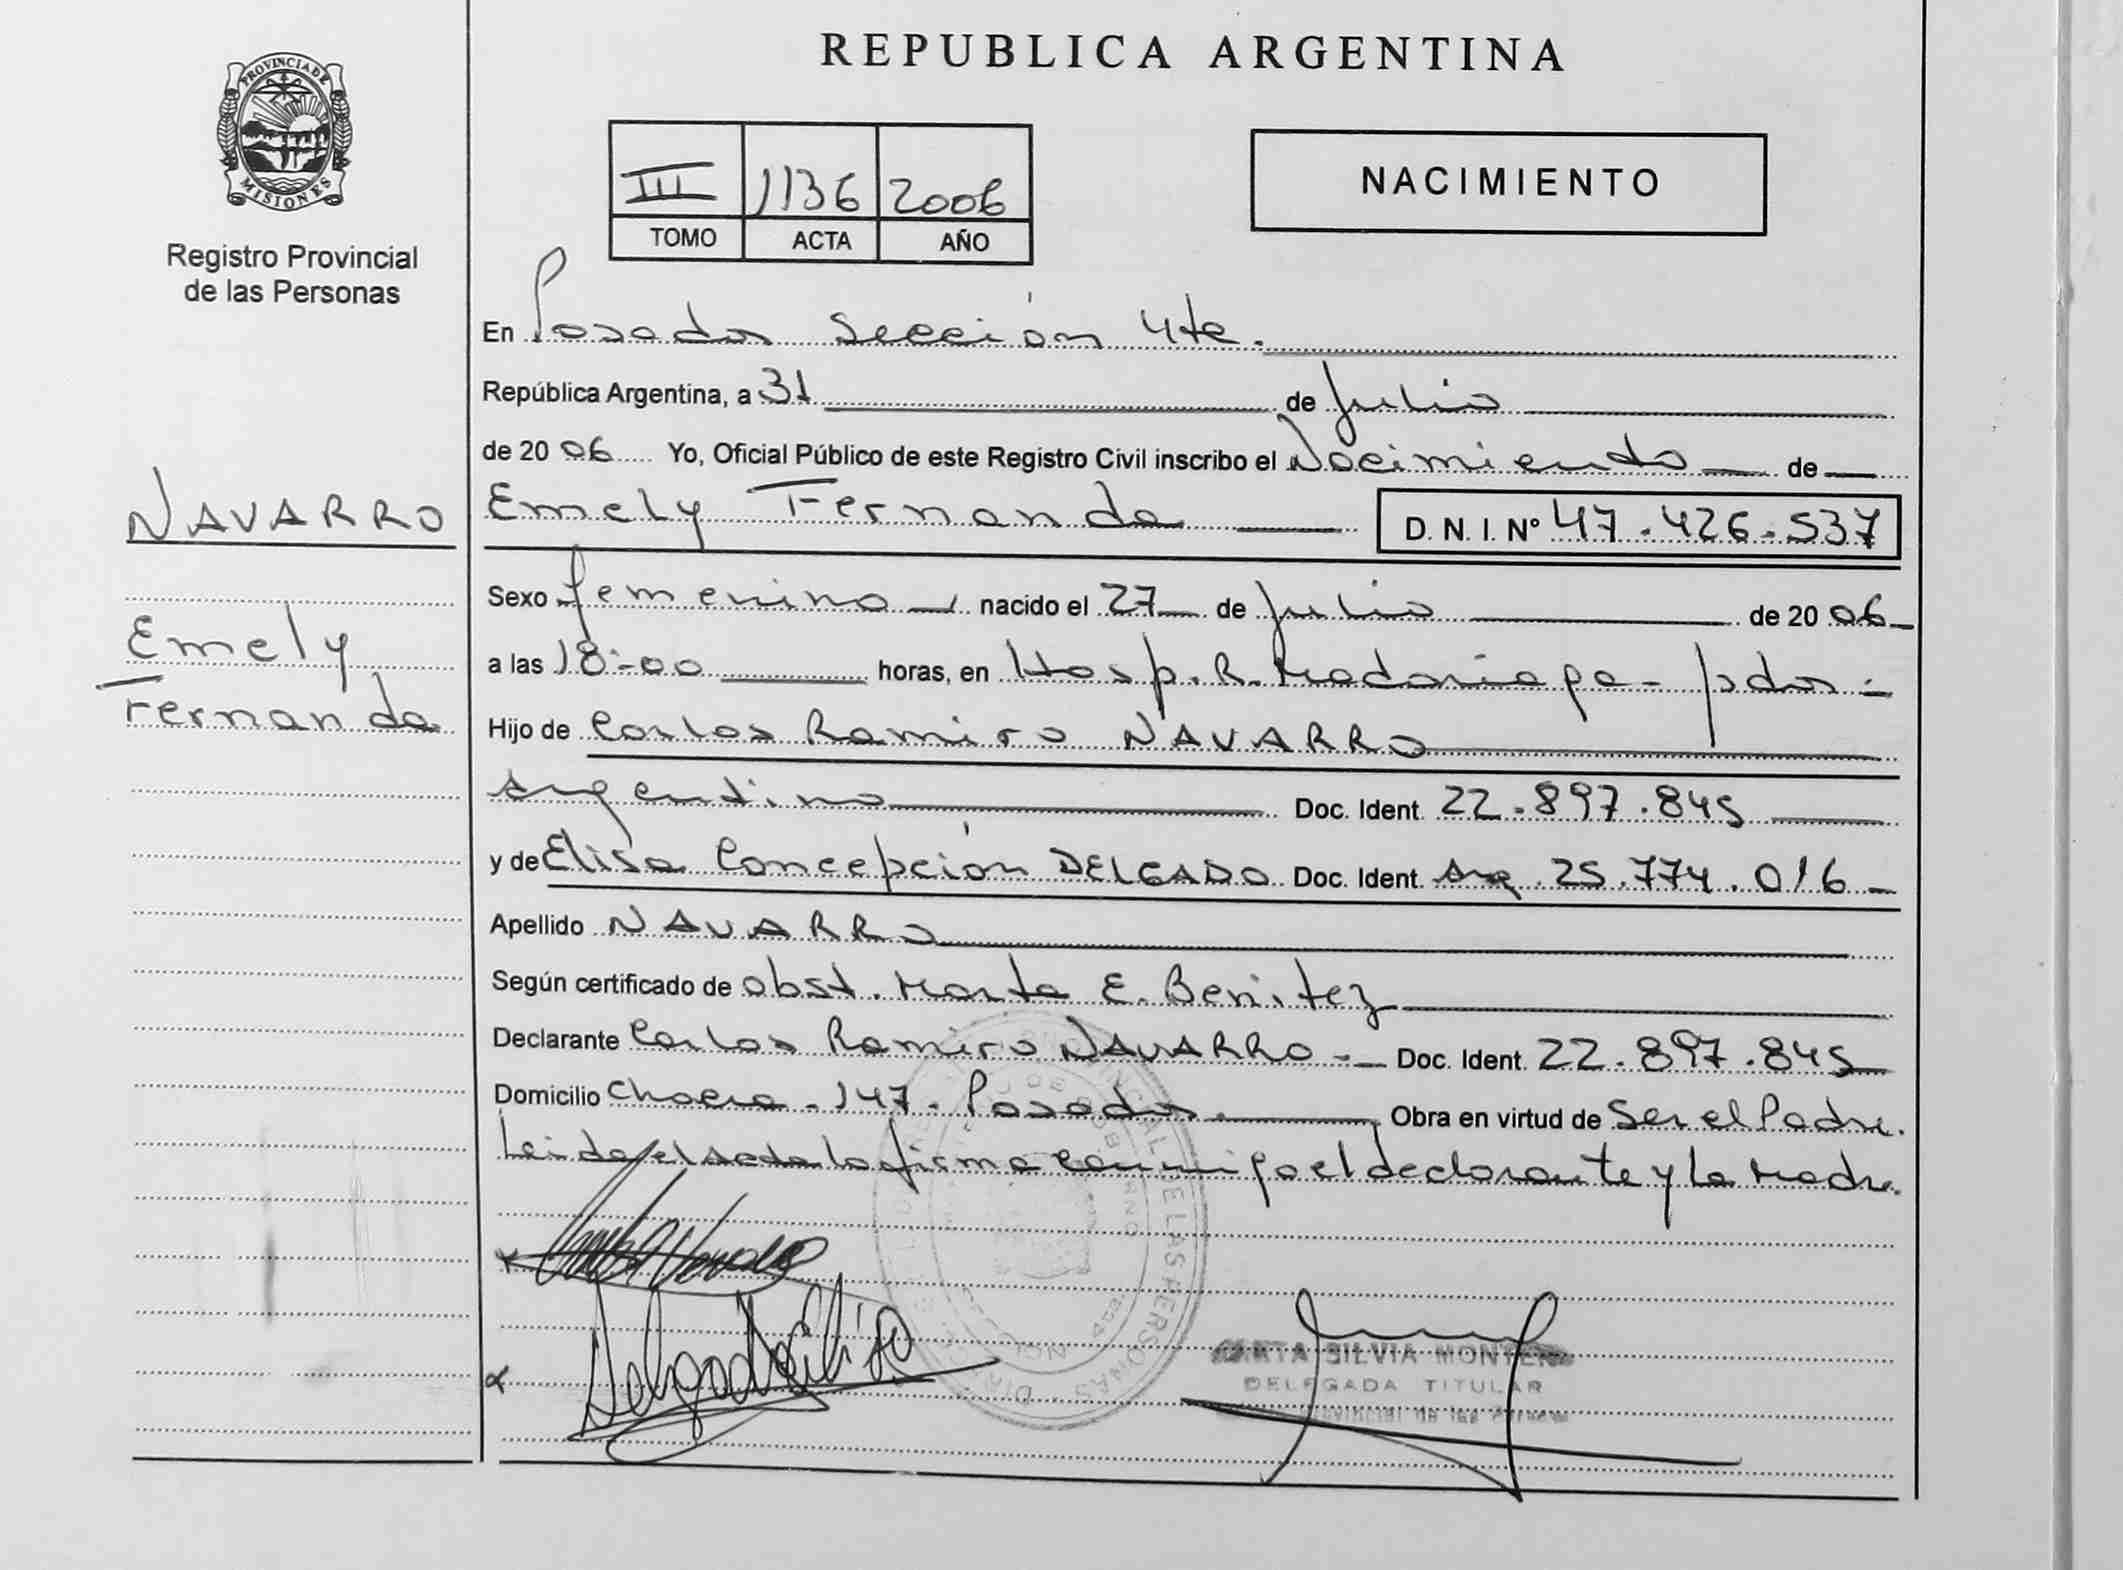 PROVINCIA DE
MISIONES
Registro Provincial
de las Personas
NAVARRO
Emely
Fernanda
REPUBLICA ARGENTINA
III 1136 2006
TOMO ACTA AÑO
NACIMIENTO
En Posadas Sección 4ta.
República Argentina, a 31 de Julio
de 2006 Yo, Oficial Público de este Registro Civil inscribo el Nacimiento de
Emely Fernanda D. N. I. Nº 47.426.537
Sexo femenino nacido el 27 de Julio de 2006
a las 18:00 horas, en Hosp. R. Madariaga - pdas -
Hijo de Carlos Ramiro NAVARRO
Argentino Doc. Ident. 22.897.845
y de Elisa Concepción DELGADO Doc. Ident. Arg. 25.774.016
Apellido NAVARRO
Según certificado de obst. Marta E. Benitez
Declarante Carlos Ramiro NAVARRO Doc. Ident. 22.897.845
Domicilio Chacra - 147 - Posadas. Obra en virtud de Ser el Padre.
Leida el acta la firma conmigo el declarante y la Madre.
Delgado Elisa
SILVIA
DELEGADA TITULAR
Provincial de las